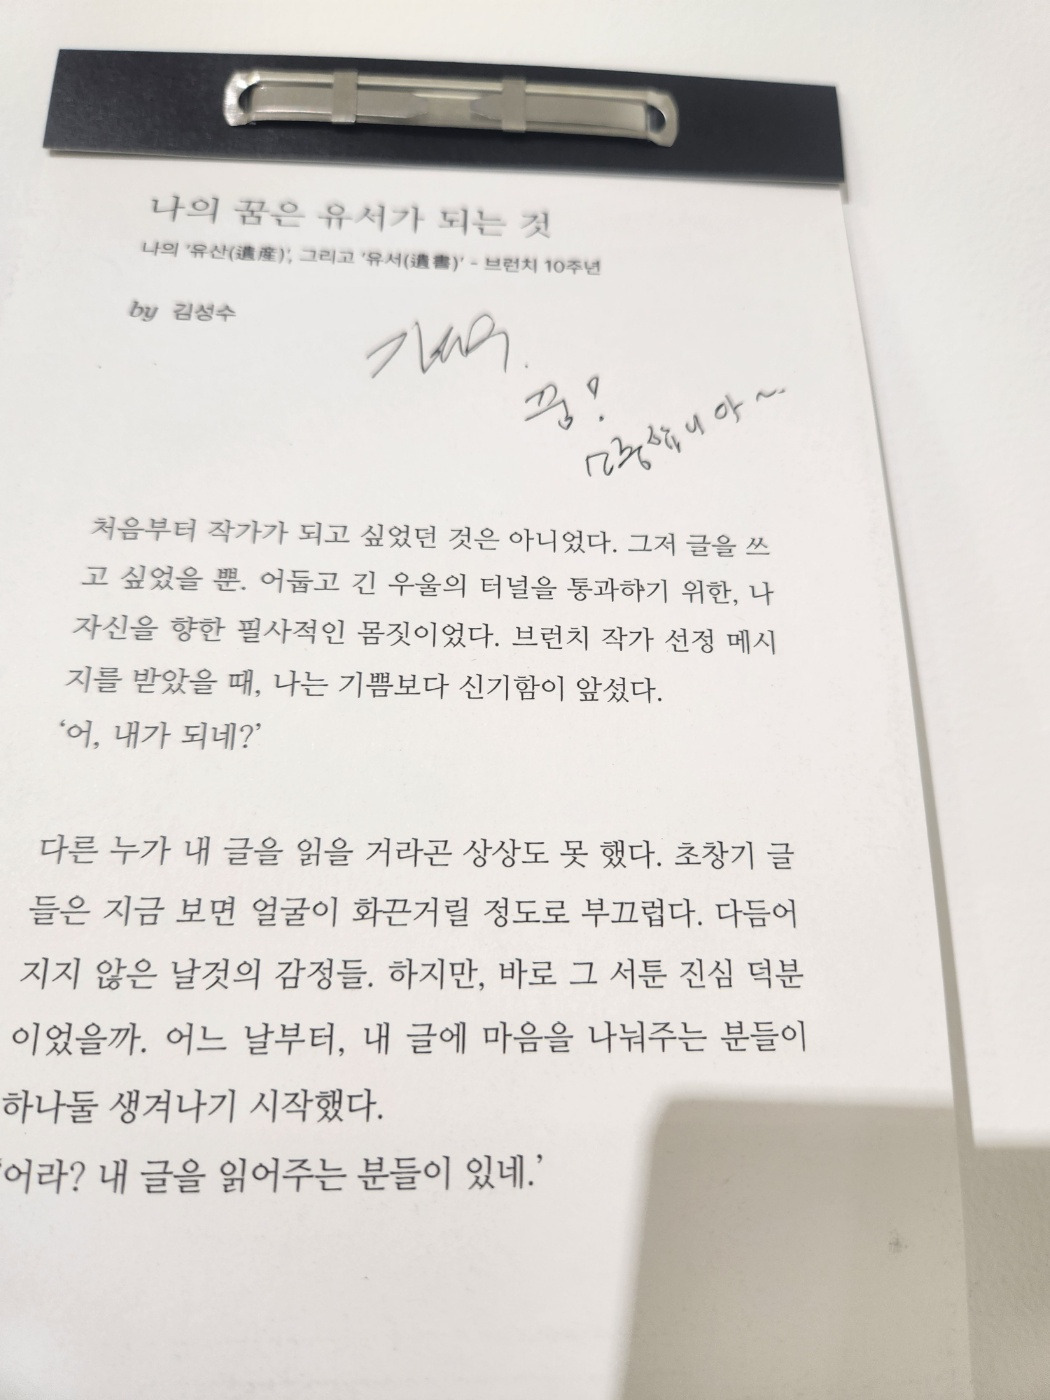 나의 꿈은 유서가 되는 것
나의 '유산(遺産)', 그리고 '유서(遺書)' - 브런치 10주년
by 김성수
꿈!
처음부터 작가가 되고 싶었던 것은 아니었다. 그저 글을 쓰
고 싶었을 뿐. 어둡고 긴 우울의 터널을 통과하기 위한, 나
자신을 향한 필사적인 몸짓이었다. 브런치 작가 선정 메시
지를 받았을 때, 나는 기쁨보다 신기함이 앞섰다.
‘어, 내가 되네?’
다른 누가 내 글을 읽을 거라곤 상상도 못 했다. 초창기 글
들은 지금 보면 얼굴이 화끈거릴 정도로 부끄럽다. 다듬어
지지 않은 날것의 감정들. 하지만, 바로 그 서툰 진심 덕분
이었을까. 어느 날부터, 내 글에 마음을 나눠주는 분들이
하나둘 생겨나기 시작했다.
‘어라? 내 글을 읽어주는 분들이 있네.’